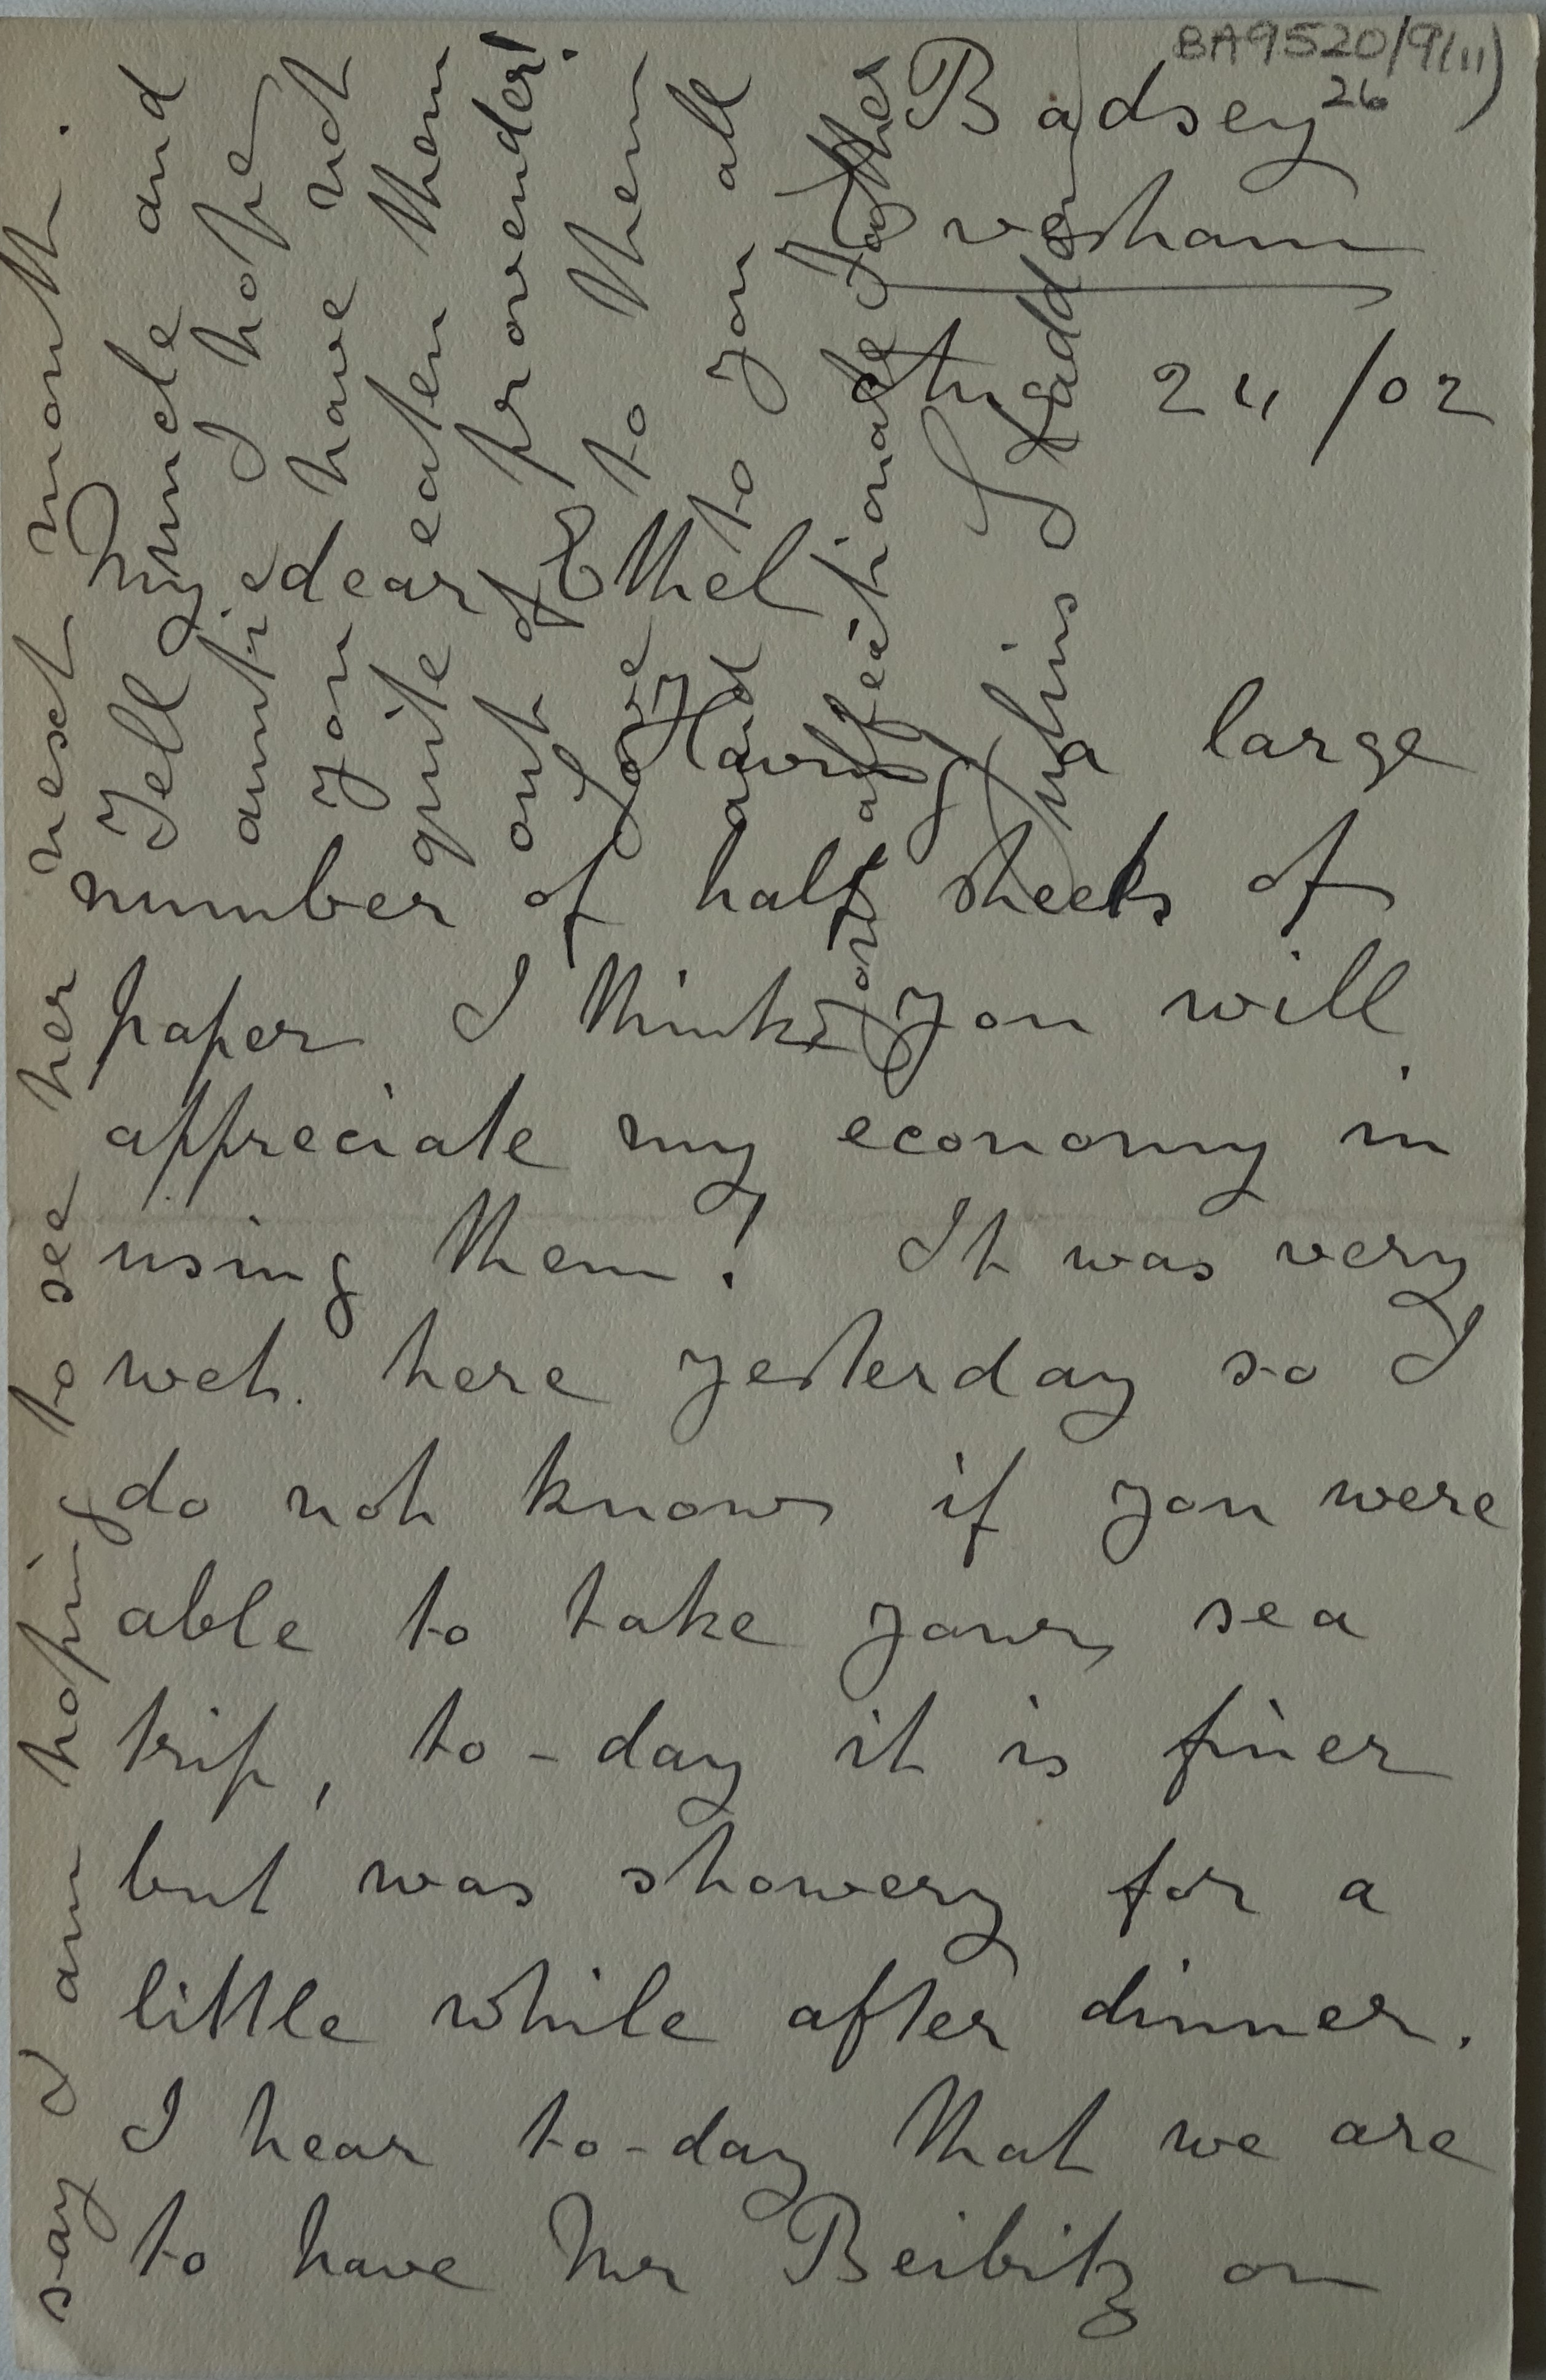 BA9520/9(11)
26
Badsey
Evesham
Aug 24/02
My dear Ethel
Having a large
number of half sheets of
paper I think you will
appreciate my economy in
using them! It was very
wet here yesterday so I
do not know if you were
able to take your sea
trip, to-day it is finer
but was showery for a
little while after dinner.
I hear to-day that we are
to have Mr Beibitz on
say I am hoping to see her next month.
Tell uncle and
auntie I hope
you have not
quite eaten them
out of provender!
Love to them
and to you all
Your affectionate Father
Julius Sladden